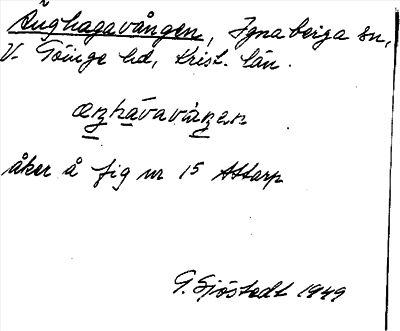 Änghagavången, Ignaberga sn,
V. Göinge hd, Krist. län.
æŋhávavàŋən
åker å fig nr 15 Attarp
G. Sjöstedt 1949